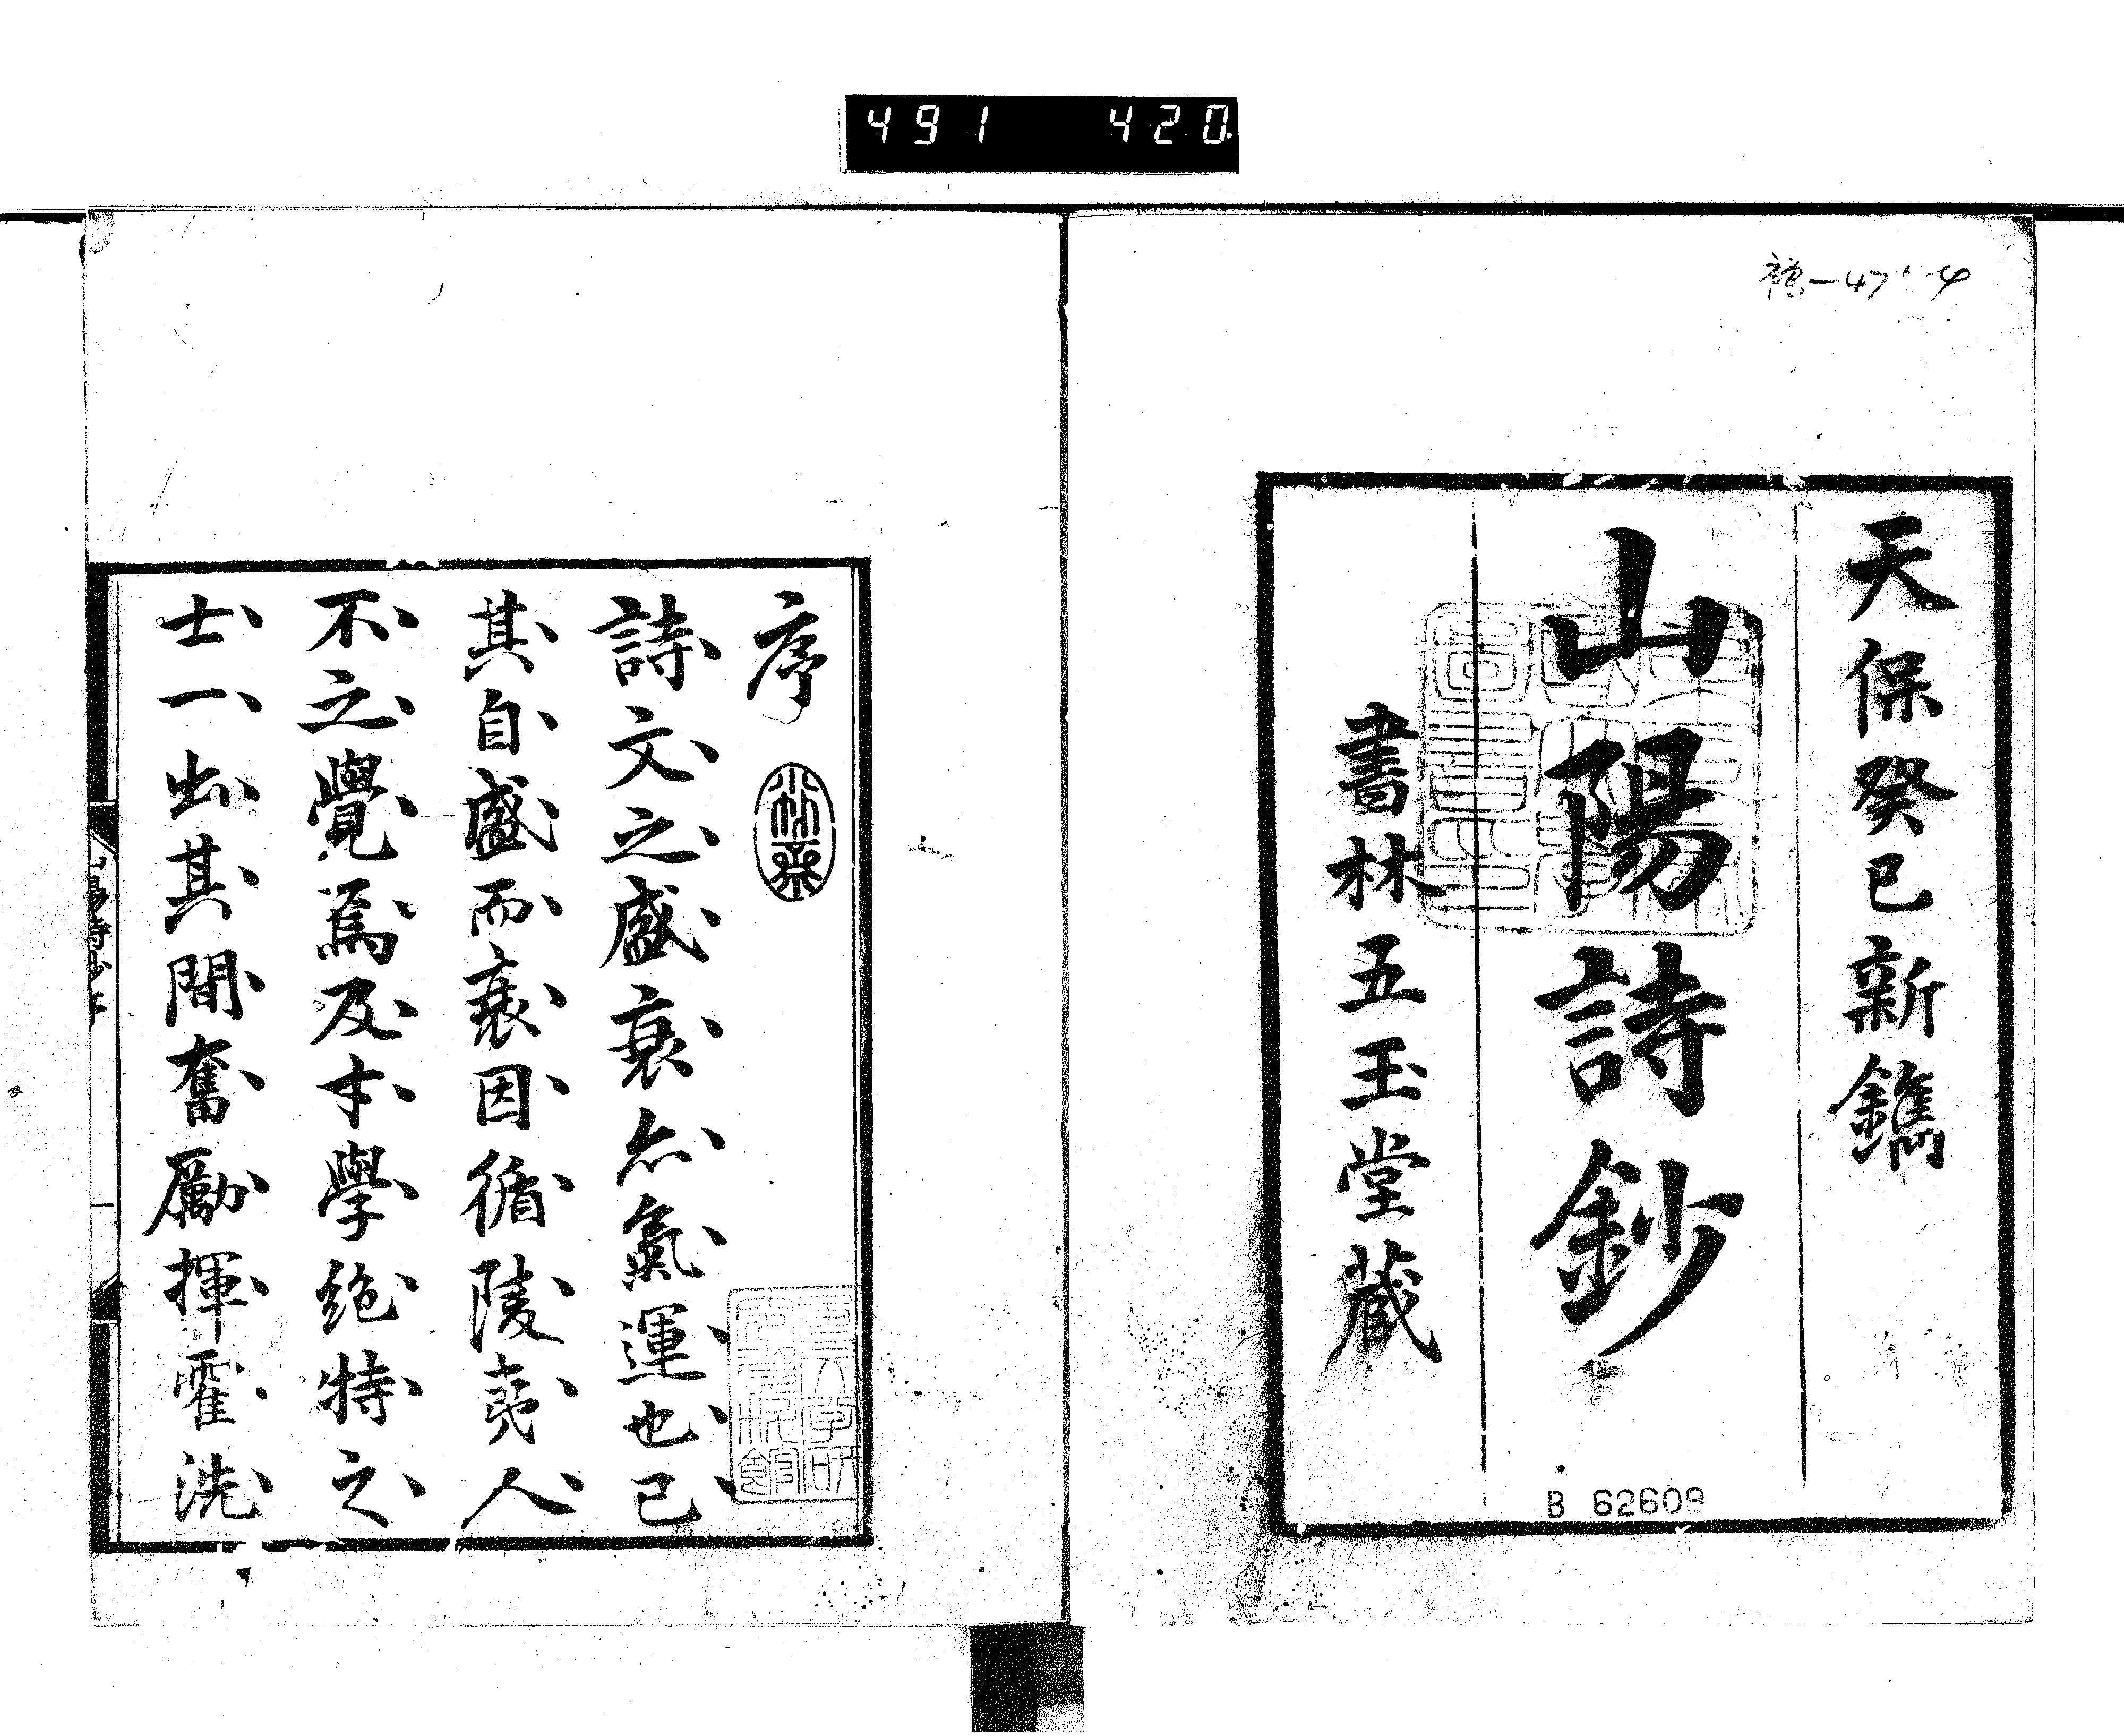 491 420
天保癸巳新鐫
山陽詩鈔
書林五玉堂蔵
B 62609
序
詩文之盛衰亦氣運也已
其自盛而衰因循陵夷人
不之覺焉及才學絶特之
士一出其間奮勵揮霍洗